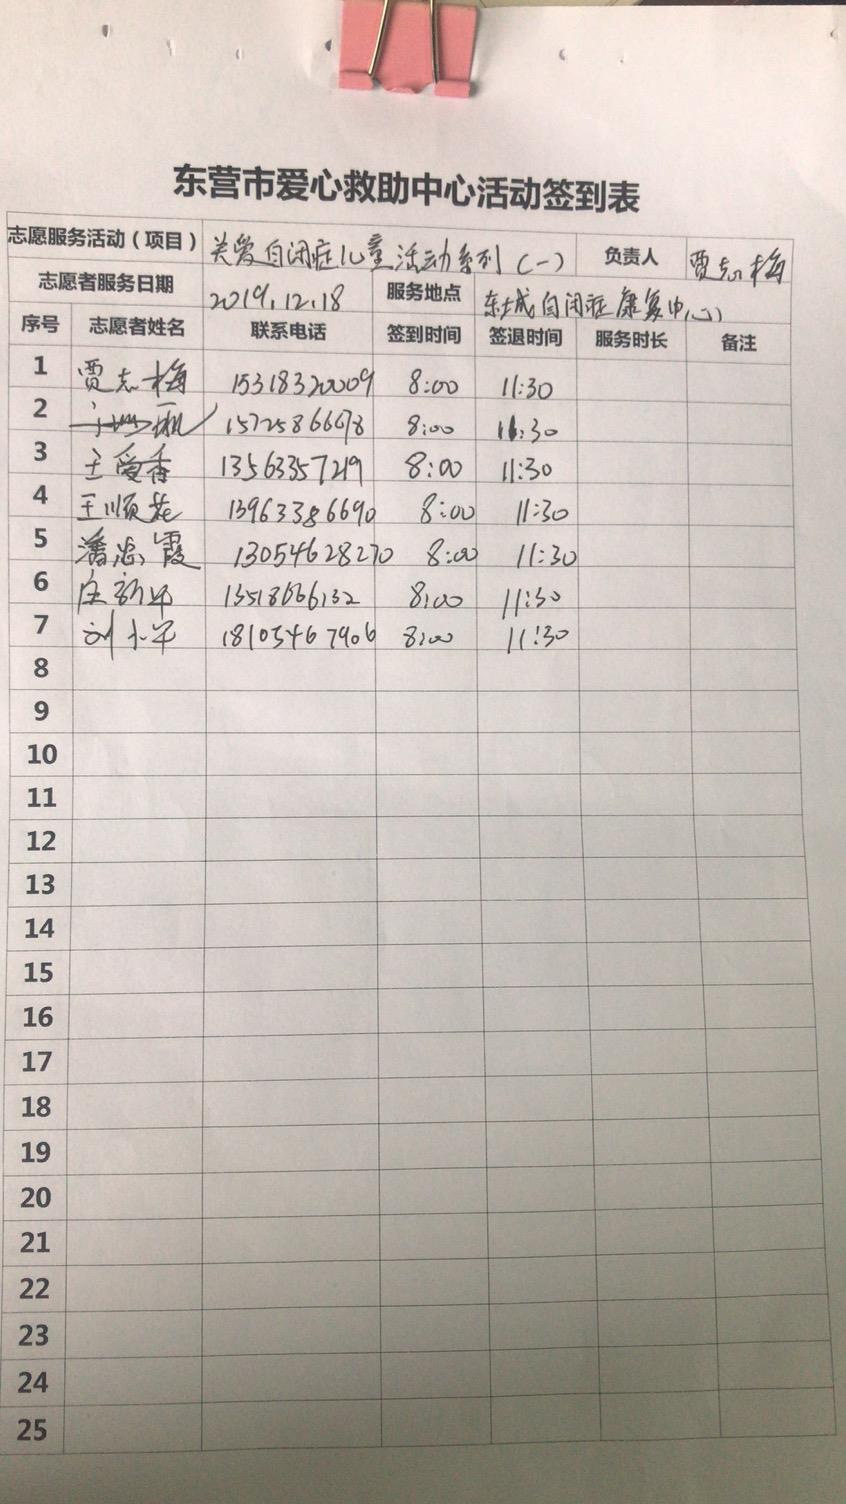 东营市爱心救助中心活动签到表
志愿服务活动（项目） 关爱自闭症儿童活动系列（一） 负责人 贾志梅
志愿者服务日期 2019.12.18 服务地点 东城自闭症康复中心
序号 志愿者姓名 联系电话 签到时间 签退时间 服务时长 备注
1 贾志梅 15318320009 8:00 11:30
2 8:00 11:30
3 王爱香 13563357219 8:00 11:30
4 王顺花 13963386690 8:00 11:30
5 潘志霞 13054628270 8:00 11:30
6 8:00 11:30
7 刘小平 18105467906 8:00 11:30
8
9
10
11
12
13
14
15
16
17
18
19
20
21
22
23
24
25